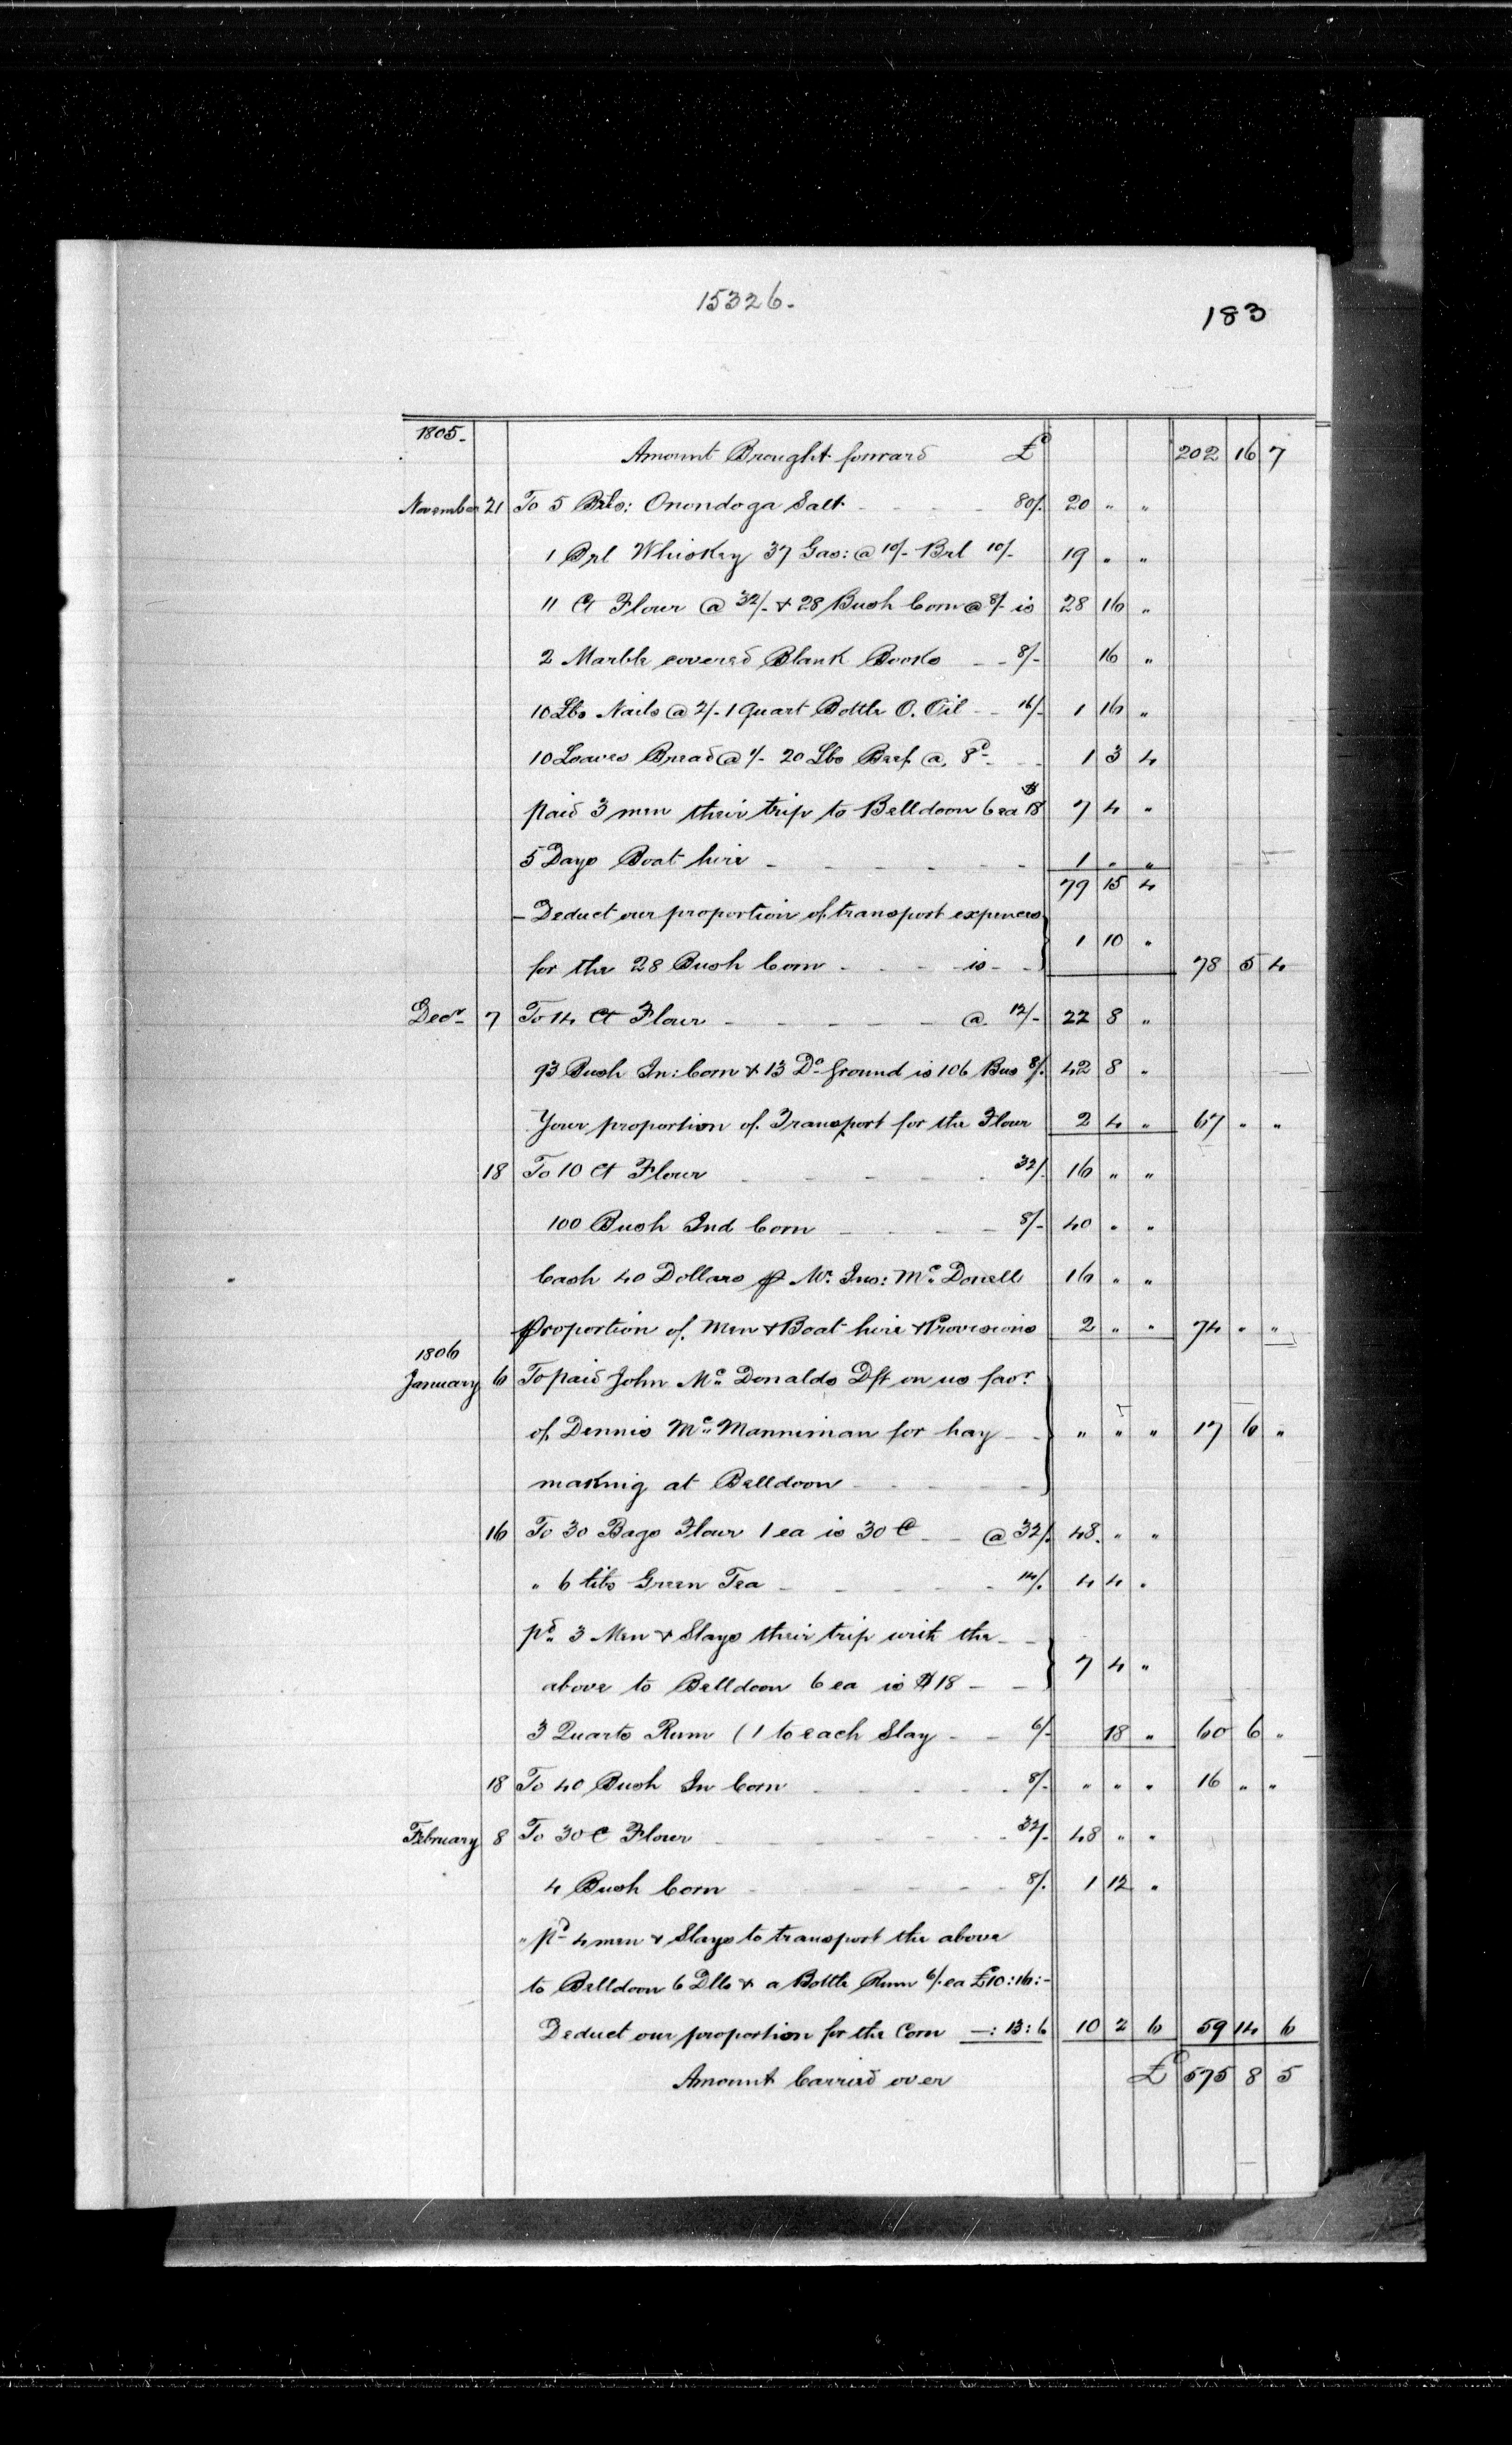 15326.
183
1805.
Amount Brought forward £ 202 16 7
November 21 To 5 Brls: Onondoga Salt 80/. 20 " "
1 Brl Whiskey 37 Gas: @ 10/- Brl 10/- 19 " "
11 Ct Flour @ 32/- & 28 Bush Corn @ 8/- is 28 16 "
2 Marble covered Blank Books 8/- 16 "
10 Lbs Nails @ 2/- 1 quart Bottle O. Oil 16/- 1 16 "
10 Loaves Bread @ 1/- 20 Lbs Beef @ 8d 1 3 4
paid 3 men their trip to Belldoon 6 ea $18 7 4 "
5 Days Boat hire 1 " "
79 15 4
- Deduct our proportion of transport expences
1 10 "
for the 28 Bush Corn is 78 5 4
Decr 7 To 14 Ct Flour @ 12/- 22 8 "
93 Bush In: Corn & 13 Do Ground is 106 Bus 8/. 42 8 "
Your proportion of Transport for the Flour 2 4 " 67 " "
18 To 10 Ct Flour 32/. 16 " "
100 Bush Ind Corn 8/- 40 " "
Cash 40 Dollars p Mr. Jno: Mc Donell 16 " "
proportion of Men & Boat hire & Provisions 2 " " 74 " "
1806
January 6 To paid John Mc Donalds Dft on us favr.
of Dennis Mc Manniman for hay " " " 17 6 "
making at Belldoon
16 To 30 Bags Flour 1 ea is 30 C @ 32/. 48 " "
" 6 lbs Green Tea 14/. 4 4 "
pd 3 Men & Slays their trip with the
7 4 "
above to Belldoon 6 ea is $18
3 Quarts Rum (1 to each Slay 6/- 18 " 60 6 "
18 To 40 Bush In Corn 8/- " " " 16 " "
February 8 To 30 C Flour 32/- 48 " "
4 Bush Corn 8/. 1 12 "
" pd 4 men & Slays to transport the above
to Belldoon 6 Dlls & a Bottle Rum 6/. ea £10:16:-
Deduct our proportion for the Corn -: 13: 6 10 2 6 59 14 6
Amount Carried over £ 575 8 5